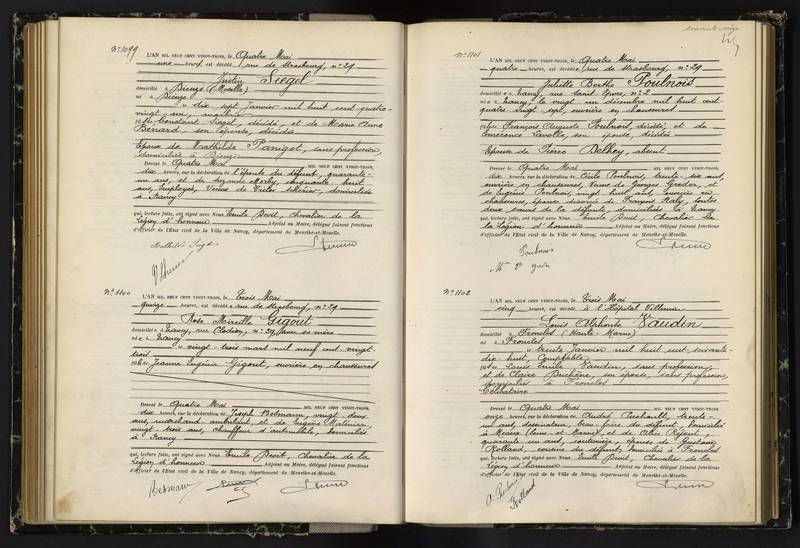 N° 1099
L'AN MIL NEUF CENT VINGT-TROIS, le Quatre Mai
une heure, est décédé rue de Strasbourg, n° 29
Justin Siegel
domicilié à Dieuze (Moselle)
né à Dieuze
le dix sept Janvier mil huit cent quatre-
vingt un,
fils de Constant Siegel, décédé, et de Marie Anne
Bernard, son épouse, décédée
Epoux de Mathilde Panigot, sans profession,
domiciliée à Dieuze
Dressé le Quatre Mai MIL NEUF CENT VINGT-TROIS,
dix heures, sur la déclaration de l'épouse du défunt, quarante-
un ans, et de cinquante huit
ans, employée, Veuve de Victor domiciliée
à Nancy
qui, lecture faite, ont signé avec Nous Emile Devit, Chevalier de la
Légion d'honneur Adjoint au Maire, délégué faisant fonctions
d'officier de l'Etat civil de la Ville de Nancy, département de Meurthe-et-Moselle.
N° 1100
L'AN MIL NEUF CENT VINGT-TROIS, le Trois Mai
quinze heures, est décédée rue de Strasbourg, n° 29
Rose Mireille Gigout
domiciliée à Nancy, rue Clodion, n° 59, avec sa mère
née à Nancy
le vingt trois mars mil neuf cent vingt-
trois
fille de Jeanne Eugénie Gigout, ouvrière en chaussures
Dressé le Quatre Mai MIL NEUF CENT VINGT-TROIS,
dix heures, sur la déclaration de Joseph Bebmann, vingt deux
ans, marchand ambulant et de Eugène Mathieu,
vingt trois ans, chauffeur d'automobile, domiciliés
à Nancy
qui, lecture faite, ont signé avec Nous Emile Devit, Chevalier de la
Légion d'honneur Adjoint au Maire, délégué faisant fonctions
d'officier de l'Etat civil de la Ville de Nancy, département de Meurthe-et-Moselle.
Bebmann
N° 1101
L'AN MIL NEUF CENT VINGT-TROIS, le Quatre Mai
quatre heures, est décédée rue de Strasbourg, n° 29
Juliette Berthe Poulnois
domiciliée à Nancy, rue Saint Epvre, n° 2
née à Nancy, le vingt un décembre mil huit cent
quatre vingt sept, ouvrière en chaussures
fille de François Auguste Poulnois, décédé, et de
son épouse, décédée
Epouse de Pierre absent
Dressé le Quatre Mai MIL NEUF CENT VINGT-TROIS,
dix heures, sur la déclaration de Cécile Poulnois, trente six ans,
ouvrière en chaussures, Veuve de Georges et
de Eugénie Poulnois, vingt huit ans, ouvrière en
chaussures, épouse divorcée de François toutes
deux sœurs de la défunte, domiciliées à Nancy
qui, lecture faite, ont signé avec Nous Emile Devit, Chevalier de
la Légion d'honneur Adjoint au Maire, délégué faisant fonctions
d'officier de l'Etat civil de la Ville de Nancy, département de Meurthe-et-Moselle.
Poulnois
N° 1102
L'AN MIL NEUF CENT VINGT-TROIS, le Trois Mai
cinq heures, est décédé à l'Hôpital Villemin
Louis Alphonse Vaudin
domicilié à Froncles (Haute-Marne)
né à Froncles
le trente Janvier mil huit cent soixante-
dix huit, Comptable
fils de Louis Emile Vaudin, sans profession,
et de Claire Duchêne, son épouse, sans profession,
domiciliés à Froncles
Célibataire
Dressé le Quatre Mai MIL NEUF CENT VINGT-TROIS,
onze heures, sur la déclaration de André trente
un ans, dessinateur, beau frère du défunt, domicilié
à Meaux (Seine et Marne), et de
quarante un ans, couturière, épouse de Gustave
Rolland, cousine du défunt, domiciliée à Froncles
qui, lecture faite, ont signé avec Nous Emile Devit, Chevalier de la
Légion d'honneur Adjoint au Maire, délégué faisant fonctions
d'officier de l'Etat civil de la Ville de Nancy, département de Meurthe-et-Moselle.
Rolland